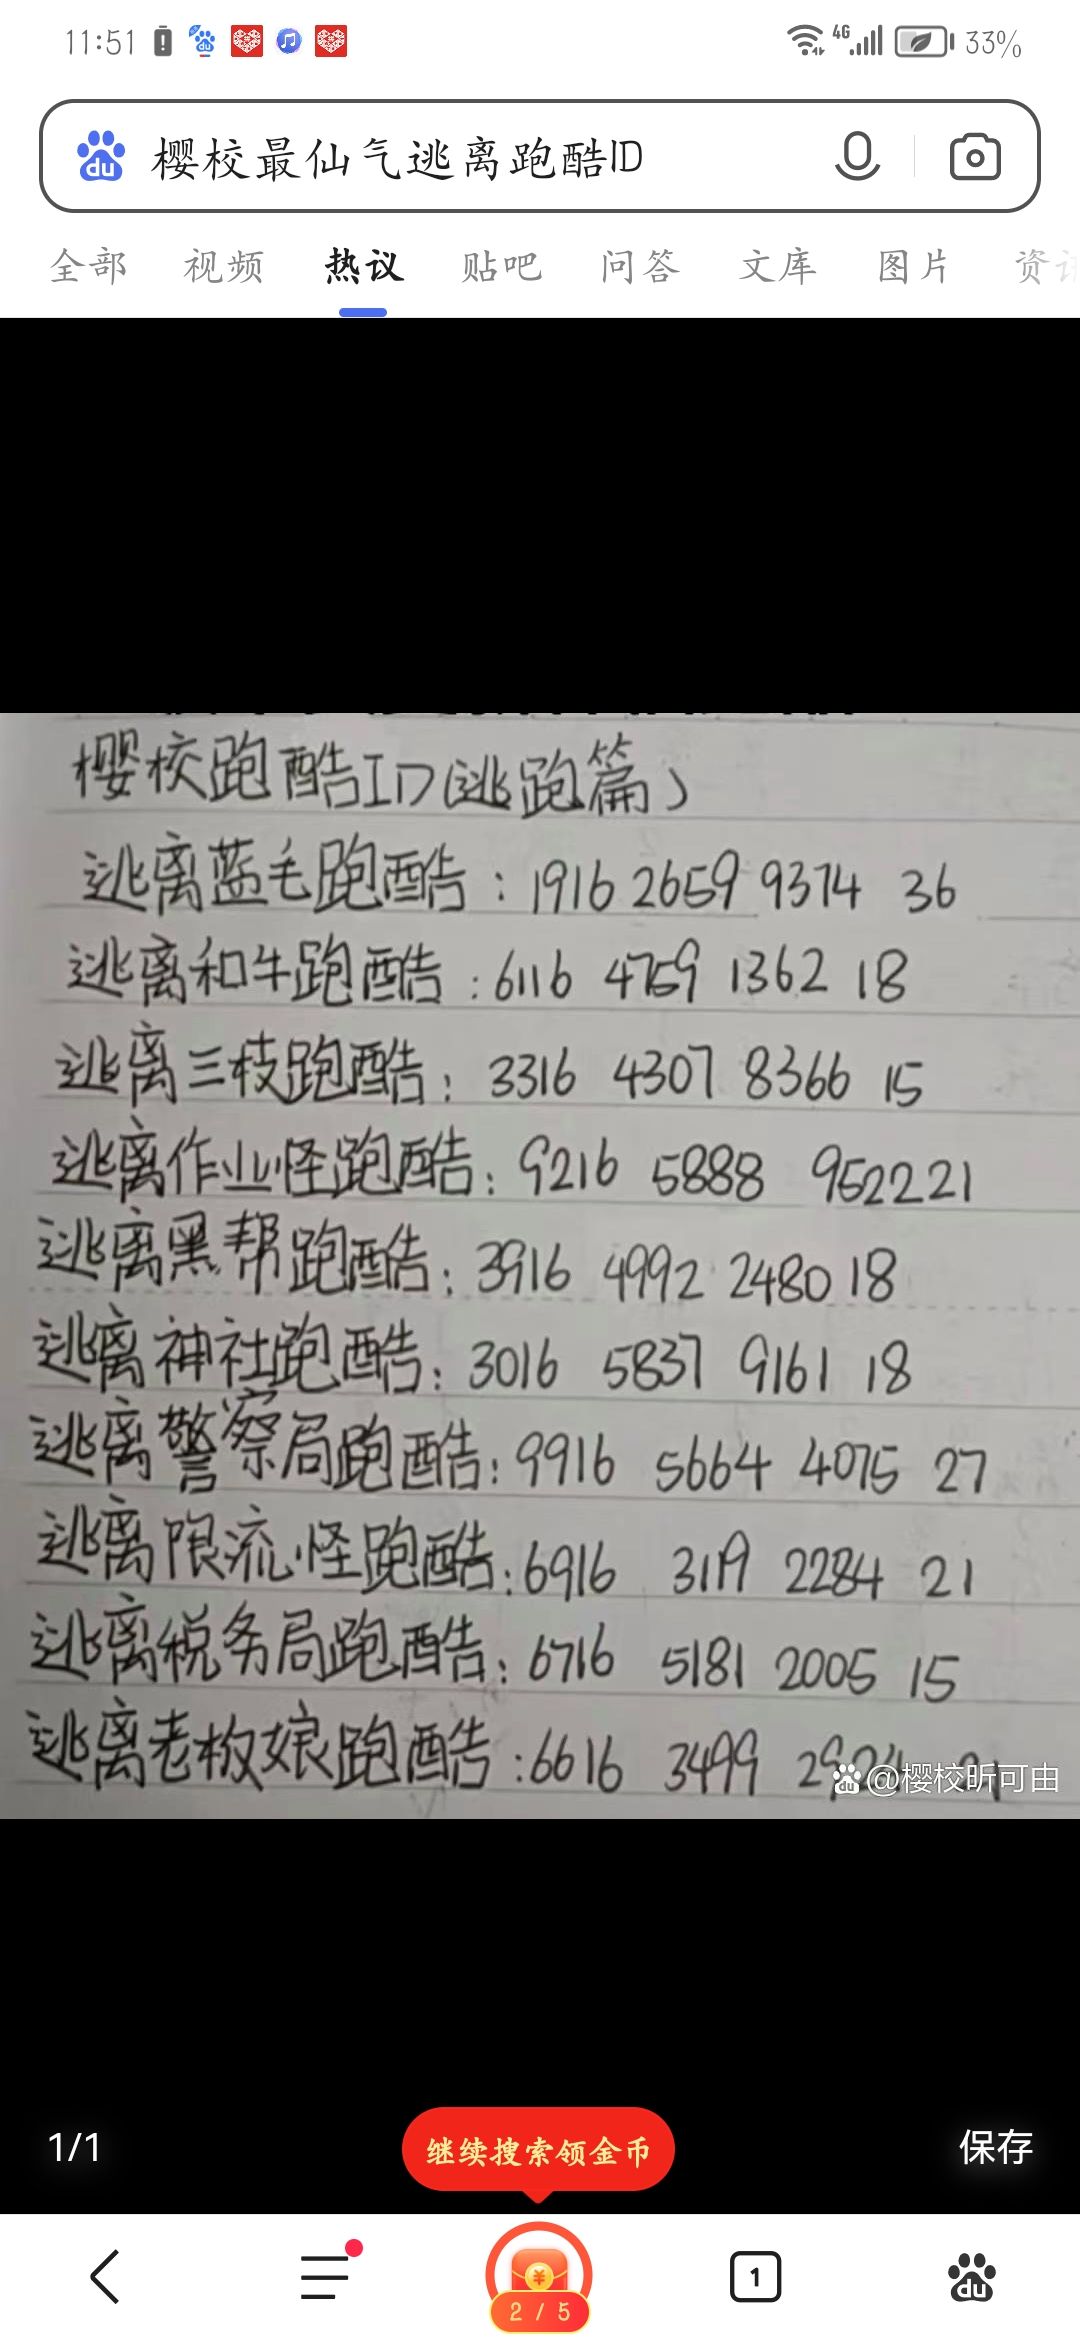 11:51
4G
33%
du 樱校最仙气逃离跑酷ID
全部 视频 热议 贴吧 问答 文库 图片 资讯
樱校跑酷ID(逃跑篇)
逃离蓝毛跑酷:1916 2659 9374 36
逃离和牛跑酷:6116 4759 1362 18
逃离三枝跑酷:3316 4307 8366 15
逃离作业怪跑酷:9216 5888 9522 21
逃离黑帮跑酷:3916 4992 2480 18
逃离神社跑酷:3016 5837 9161 18
逃离警察局跑酷:9916 5664 4075 27
逃离限流怪跑酷:6916 3119 2284 21
逃离税务局跑酷:6716 5181 2005 15
逃离老板娘跑酷:6616 3499
du @樱校昕可由
1/1
继续搜索领金币
保存
2 / 5
1
du